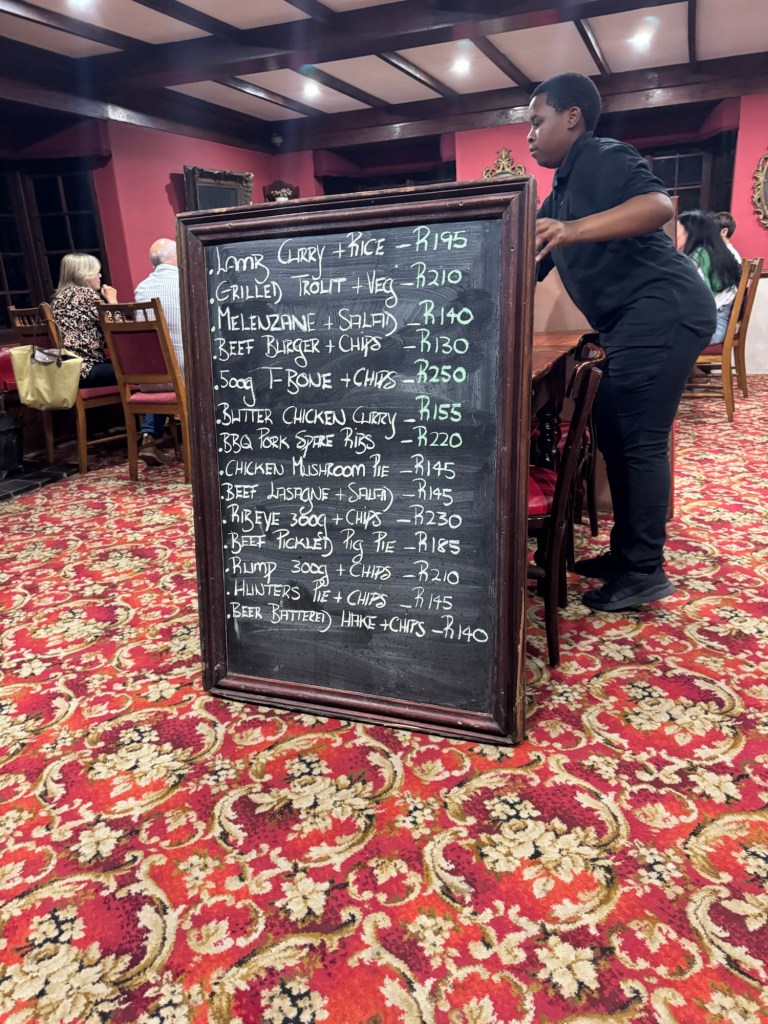 .LAMB CURRY + RICE - R195
.GRILLED TROUT + VEG - R210
.MELENZANE + SALAD - R140
.BEEF BURGER + CHIPS - R130
.500g T-BONE + CHIPS - R250
.BUTTER CHICKEN CURRY - R155
.BBQ PORK SPARE RIBS - R220
.CHICKEN MUSHROOM PIE - R145
.BEEF LASAGNE + SALAD - R145
.RIBEYE 300g + CHIPS - R230
.BEEF PICKLED PIG PIE - R185
.RUMP 300g + CHIPS - R210
.HUNTERS PIE + CHIPS - R145
.BEER BATTERED HAKE + CHIPS - R140